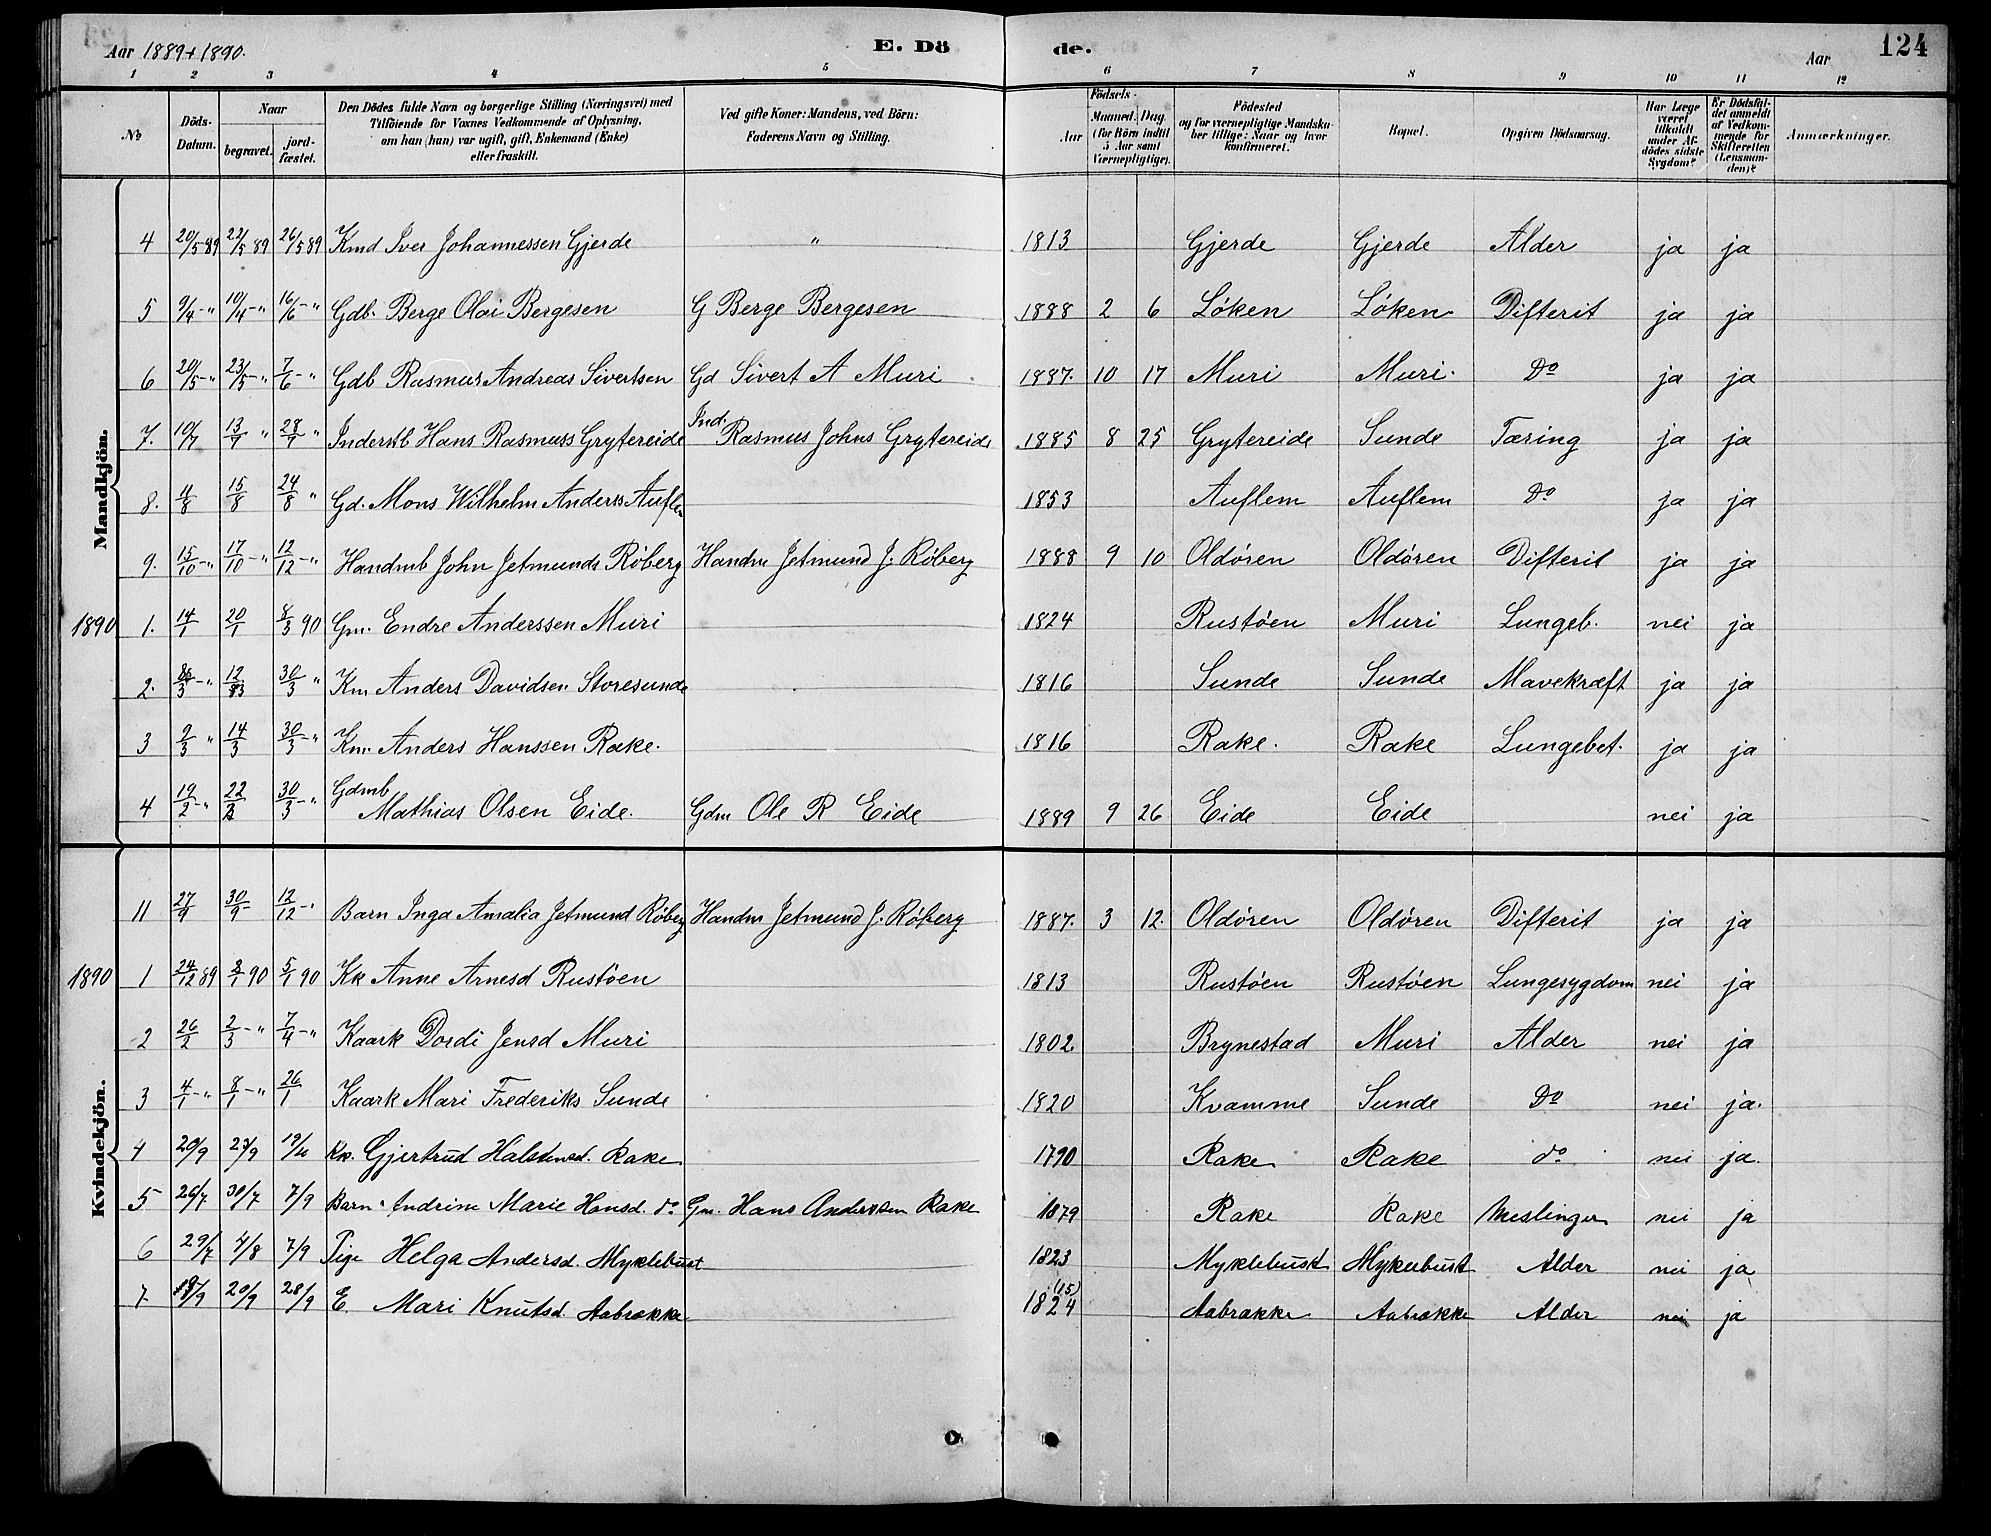 Aar 1889 + 1890. E. Dö de. Aar 124
1 2 3 4 5 6 7 8 9 10 11 12
No Döds-Datum. Naar begravet. jordfæstet. Den Dödes fulde Navn og borgerlige Stilling (Næringsvei) med Tilföiende for Voxnes Vedkommende af Oplysning, om han (hun) var ugift, gift, Enkemand (Enke) eller fraskilt. Ved gifte Koner: Mandens, ved Börn: Faderens Navn og Stilling. Aar Födsels- Maaned. Dag. (for Börn indtil 5 Aar samt Værnepligtige). Födested og for værnepligtige Mandskaber tillige: Naar og hvor konfirmeret. Bopæl. Opgiven Dödsaarsag. Har Læge været tilkaldt under Afdödes sidste Sygdom? Er Dödsfaldet anmeldt af Vedkommende for Skifteretten (Lensmanden)? Anmærkninger.
Mandkjön.
4 20/5 89 22/5 89 26/5 89 Kmd Iver Johannessen Gjerde " 1813 Gjerde Gjerde Alder ja ja
5 9/4 - " 10/4 - " 16/6 - " Gdb. Berge Olai Bergesen G Berge Bergesen 1888 2 6 Löken Löken Difterit ja ja
6 20/5 - " 23/5 - " 7/6 - " Gdb Rasmus Andreas Sivertsen Gd Sivert A Muri 1887. 10 17 Muri Muri. Do ja ja
7. 10/7 13/7 " 28/7 " Inderstb Hans Rasmuss Grytereide Ind. Rasmus Johns Grytereide 1885 8 25 Grytereide Sunde Tæring ja ja
8. 11/8 15/8 24/8 " Gd. Mons Wilhelm Anderss Auflem 1853 Auflem Auflem Do ja ja
9. 15/10 - " 17/10 - " 12/12 - " Handmb John Jetmunds Röberg Handm Jetmund J. Röberg 1888 9 10 Oldören Oldören Difterit ja ja
1890 1. 14/1 20/1 8/3 90 Gm. Endre Anderssen Muri 1824 Rustöen Muri Lungeb. nei ja
2. /3 - " 12/3 30/3 " Km Anders Davidsen Storesunde 1816 Sunde Sunde Mavekræft ja ja
3 9/3 " 14/3 30/3 - " Km. Anders Hanssen Rake. 1816 Rake. Rake Lungebet. ja ja
4 19/2 - " 22/2 30/3 - " Gdmb Mathias Olsen Eide. Gdm Ole R Eide 1889 9 26 Eide Eide nei ja
Kvindekjön.
11 27/9 30/9 12/12 - " Barn Inga Amalia Jetmund Röberg Handm Jetmund J. Röberg 1887. 3 12. Oldören Oldören Difterit ja ja
1890 1 24/12 89 2/1 90 5/1 90 Kk Anne Arnesd Rustöen 1813 Rustöen Rustöen Lungesygdom nei ja
2 26/2 2/3 - " 7/4 - " Kaark Dordi Jensd Muri 1802 Brynestad Muri Alder nei ja
3 4/1 - " 8/1 - " 26/1 Kaark Mari Frederiks Sunde 1820 Kvamme Sunde Do nei ja.
4 20/9 27/9 19/10 Kk. Gjertrud Halstensd. Rake 1790 Rake Rake do nei ja.
5 26/7 30/7 7/9 Barn Andrine Marie Hansd. do Gm. Hans Anderssen Rake 1879 Rake Rake Meslinger nei ja
6 29/7 4/8 7/9 Pige Helga Andersd. Myklebust 1823 Myklebust Myklebust Alder nei ja
7 /9 20/9 28/9 E. Mari Knutsd. Aabrække 1824 (15) Aabrække Aabrække Alder nei ja